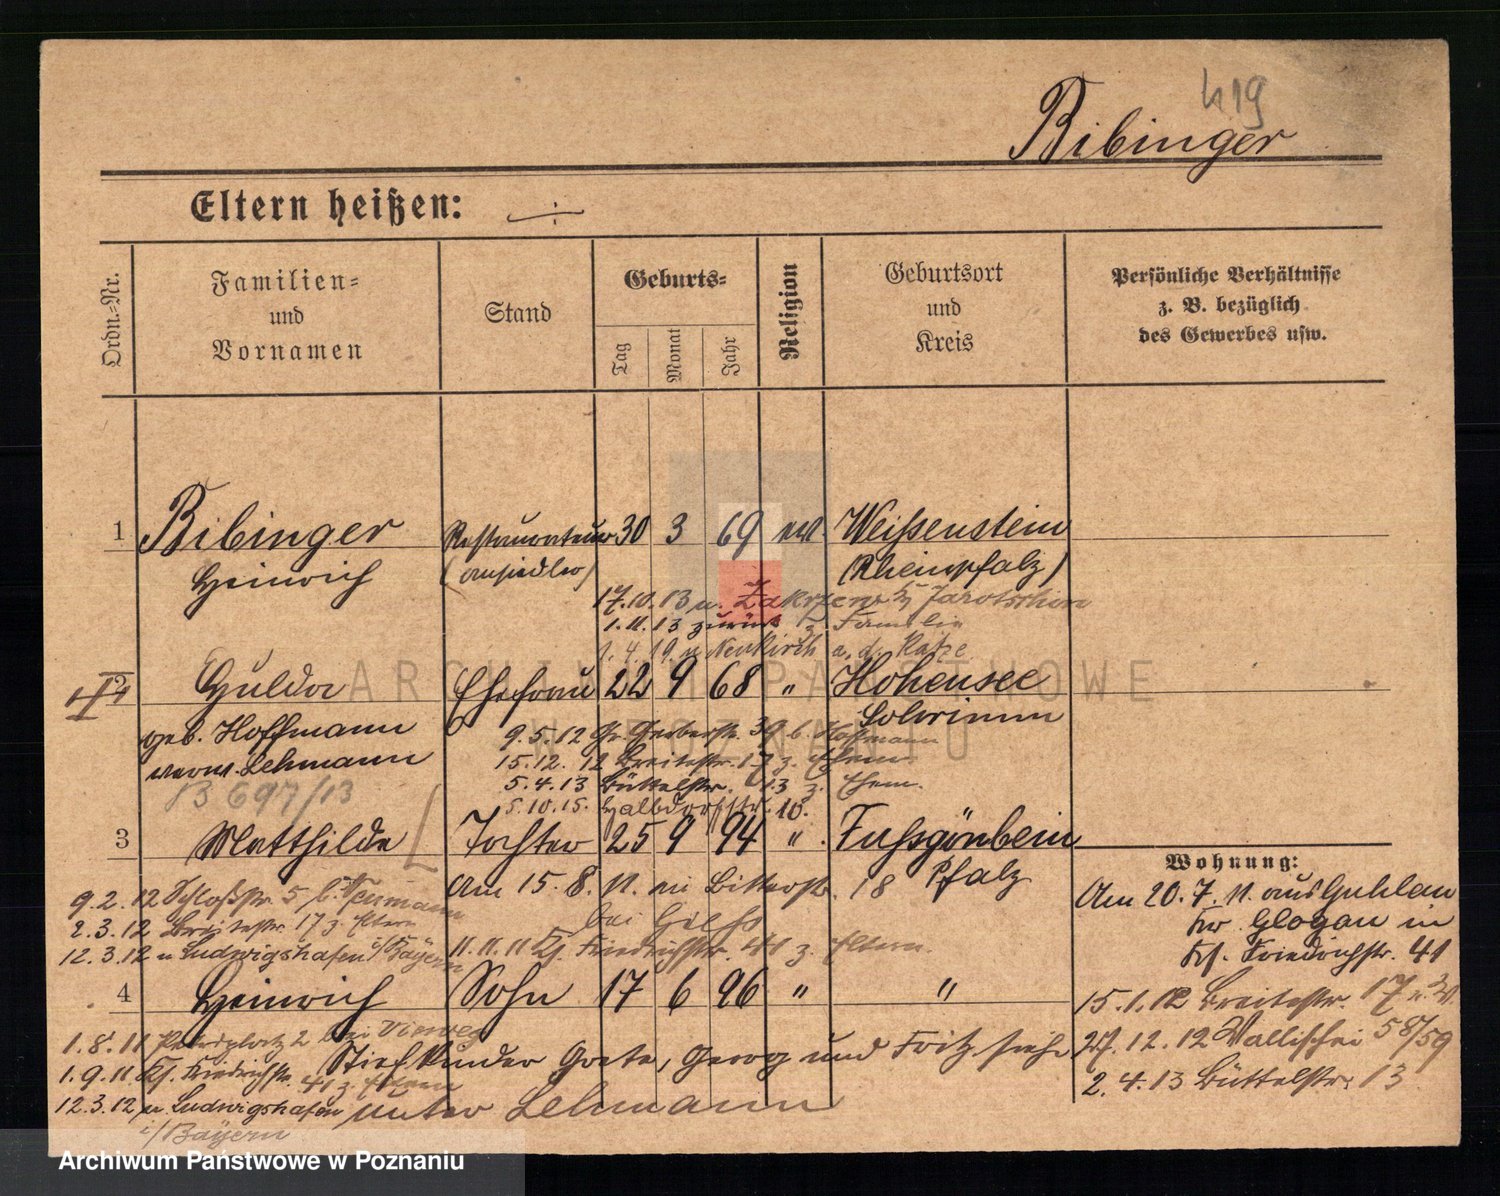 419
Bibinger
Eltern heißen: ÷
Ordn.-Nr.
Familien-
und
Vornamen
Stand
Geburts-
Tag
Monat
Jahr
Religion
Geburtsort
und
Kreis
Persönliche Verhältnisse
z. B. bezüglich
des Gewerbes usw.
1 Bibinger Restaurateur 30 3 69 ev. Weißenstein
Heinrich (Ansiedler) (Rheinpfalz)
17.10.13 n. Jarotschin
1.11.13 zurück z. Familie
1.4.19. n. Neukirch a. d. Katze
2 Hulda Ehefrau 22 9 68 " Hohensee
geb. Hoffmann
9.5.12 Gr. Gerberstr. 39 b. Hoffmann
verw. Lehmann
15.12.12 Breitestr. 17 z. Ehem.
5.4.13 Büttelstr. 13 z. Ehem.
B 697/13
5.10.15. Halbdorfstr. 10.
3 Matthilde Tochter 25 9 94 " Fußgönheim
Pfalz
Am 15.8.11. Bitterstr. 18
bei
9.2.12 Schloßstr. 5 b. Neumann
2.3.12 Breitestr. 17 z. Eltern
12.3.12 n Ludwigshafen i/Bayern
11.11.11 Kf. Friedrichstr. 41 z. Eltern.
4 Heinrich Sohn 17 6 96 " "
1.8.11 Petriplatz 2 bei
1.9.11 Kf. Friedrichstr. 41 z. Eltern
12.3.12 n. Ludwigshafen
i/Bayern
Stiefkinder Grete, Georg und Fritz siehe
unter Lehmann
Wohnung:
Am 20.7.11. aus Guhlau
Kr. Glogau in
Kf. Friedrichstr. 41
15.1.12 Breitestr. 17
27.12.12 Wallischei 58/59
2.4.13 Büttelstr. 13
ARCHIWUM PAŃSTWOWE
W POZNANIU
Archiwum Państwowe w Poznaniu